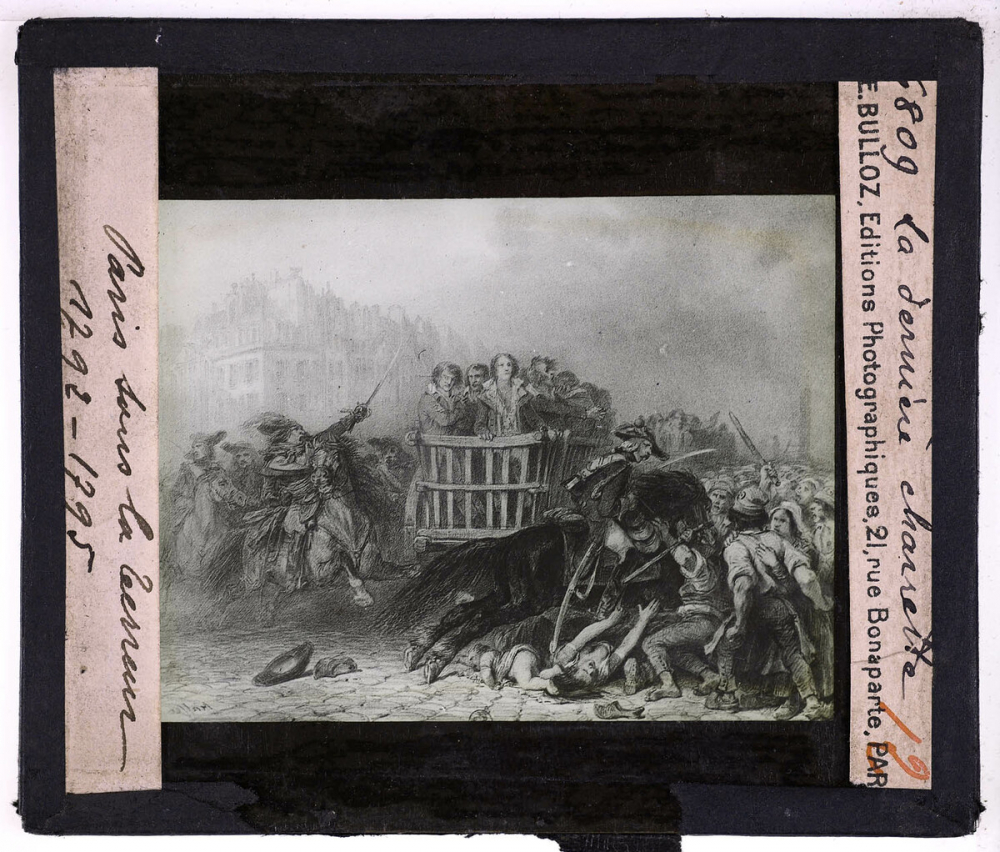 Paris sous la Terreur
1793 - 1795
6809 la dernière charrette
19
E. BULLOZ, Editions Photographiques, 21, rue Bonaparte, PAR